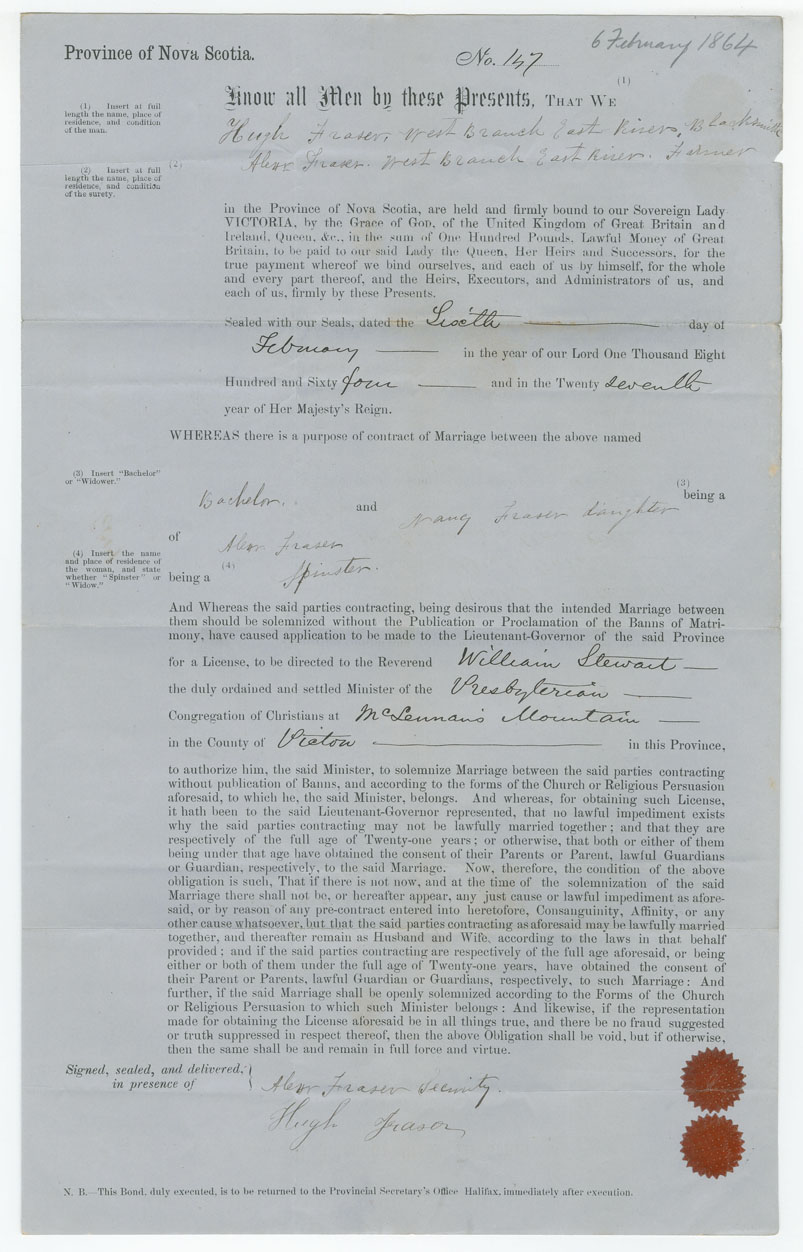 6 February 1864
Province of Nova Scotia.
No. 147
(1)
Know all Men by these Presents, THAT WE
(1) Insert at full
length the name, place of
residence, and condition
of the man.
Hugh Fraser, West Branch East River, Blacksmith
(2)
Alexr Fraser. West Branch East River. Farmer
(2) Insert at full
length the name, place of
residence, and condition
of the surety.
in the Province of Nova Scotia, are held and firmly bound to our Sovereign Lady
VICTORIA, by the Grace of GOD, of the United Kingdom of Great Britain and
Ireland, Queen, &c., in the sum of One Hundred Pounds, Lawful Money of Great
Britain, to be paid to our said Lady the Queen, Her Heirs and Successors, for the
true payment whereof we bind ourselves, and each of us by himself, for the whole
and every part thereof, and the Heirs, Executors, and Administrators of us, and
each of us, firmly by these Presents.
Sealed with our Seals, dated the Sixth day of
February in the year of our Lord One Thousand Eight
Hundred and Sixty four and in the Twenty seventh
year of Her Majesty's Reign.
WHEREAS there is a purpose of contract of Marriage between the above named
(3) Insert "Bachelor"
or "Widower."
(3)
being a
Bachelor. and Nancy Fraser daughter
of Alexr Fraser
(4) Insert the name
and place of residence of
the woman, and state
whether "Spinster" or
"Widow."
being a (4) Spinster.
And Whereas the said parties contracting, being desirous that the intended Marriage between
them should be solemnized without the Publication or Proclamation of the Banns of Matri-
mony, have caused application to be made to the Lieutenant-Governor of the said Province
for a License, to be directed to the Reverend William Stewart
the duly ordained and settled Minister of the Presbyterian
Congregation of Christians at McLennan's Mountain
in the County of Pictou in this Province,
to authorize him, the said Minister, to solemnize Marriage between the said parties contracting
without publication of Banns, and according to the forms of the Church or Religious Persuasion
aforesaid, to which he, the said Minister, belongs. And whereas, for obtaining such License,
it hath been to the said Lieutenant-Governor represented, that no lawful impediment exists
why the said parties contracting may not be lawfully married together; and that they are
respectively of the full age of Twenty-one years; or otherwise, that both or either of them
being under that age have obtained the consent of their Parents or Parent, lawful Guardians
or Guardian, respectively, to the said Marriage. Now, therefore, the condition of the above
obligation is such, That if there is not now, and at the time of the solemnization of the said
Marriage there shall not be, or hereafter appear, any just cause or lawful impediment as afore-
said, or by reason of any pre-contract entered into heretofore, Consanguinity, Affinity, or any
other cause whatsoever, but that the said parties contracting as aforesaid may be lawfully married
together, and thereafter remain as Husband and Wife, according to the laws in that behalf
provided; and if the said parties contracting are respectively of the full age aforesaid, or being
either or both of them under the full age of Twenty-one years, have obtained the consent of
their Parent or Parents, lawful Guardian or Guardians, respectively, to such Marriage: And
further, if the said Marriage shall be openly solemnized according to the Forms of the Church
or Religious Persuasion to which such Minister belongs: And likewise, if the representation
made for obtaining the License aforesaid be in all things true, and there be no fraud suggested
or truth suppressed in respect thereof, then the above Obligation shall be void, but if otherwise,
then the same shall be and remain in full force and virtue.
Signed, sealed, and delivered,
in presence of
Alexr Fraser Security.
Hugh Fraser
N. B.—This Bond, duly executed, is to be returned to the Provincial Secretary's Office Halifax, immediately after execution.